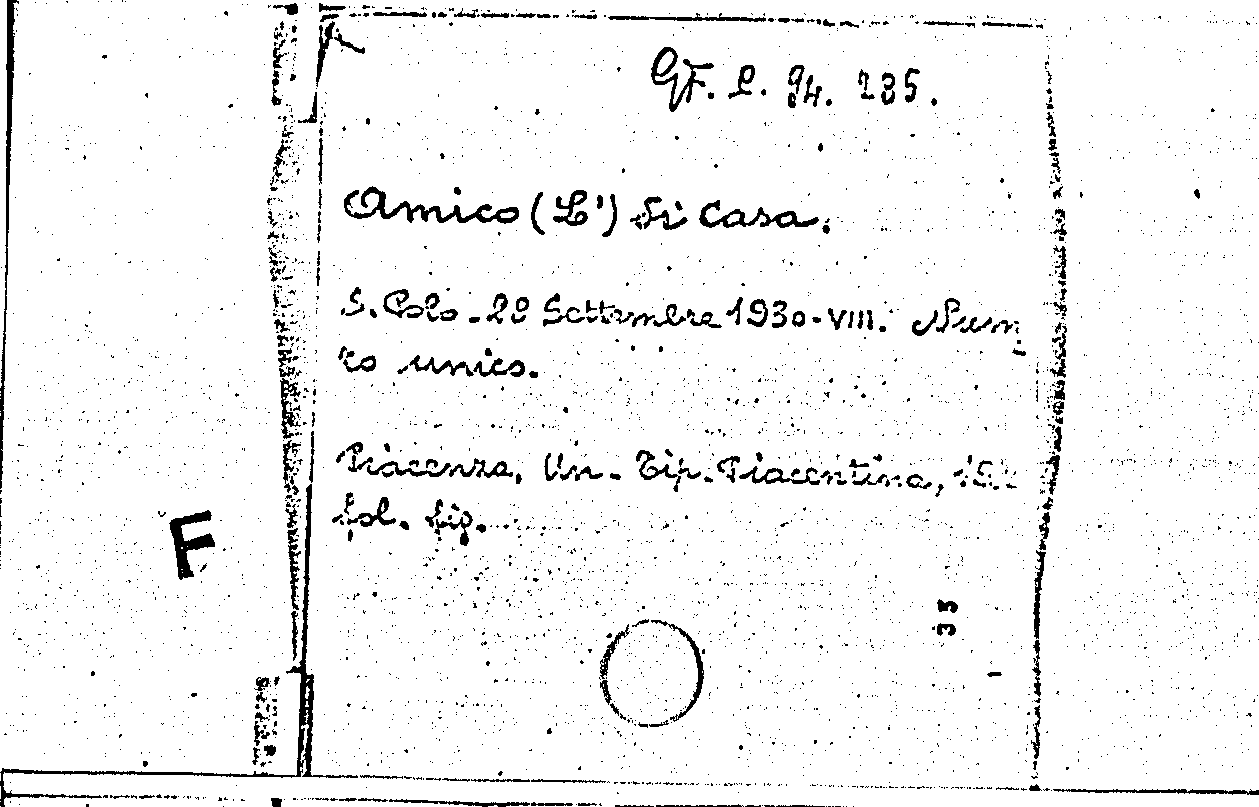 GF. C. 94. 235.
Amico (L') di Casa.
S. Polo - 28 Settembre 1930-VIII. Num
ro unico.
Piacenza, Un. Tip. Piacentina, 19
fol. fig.
F
35